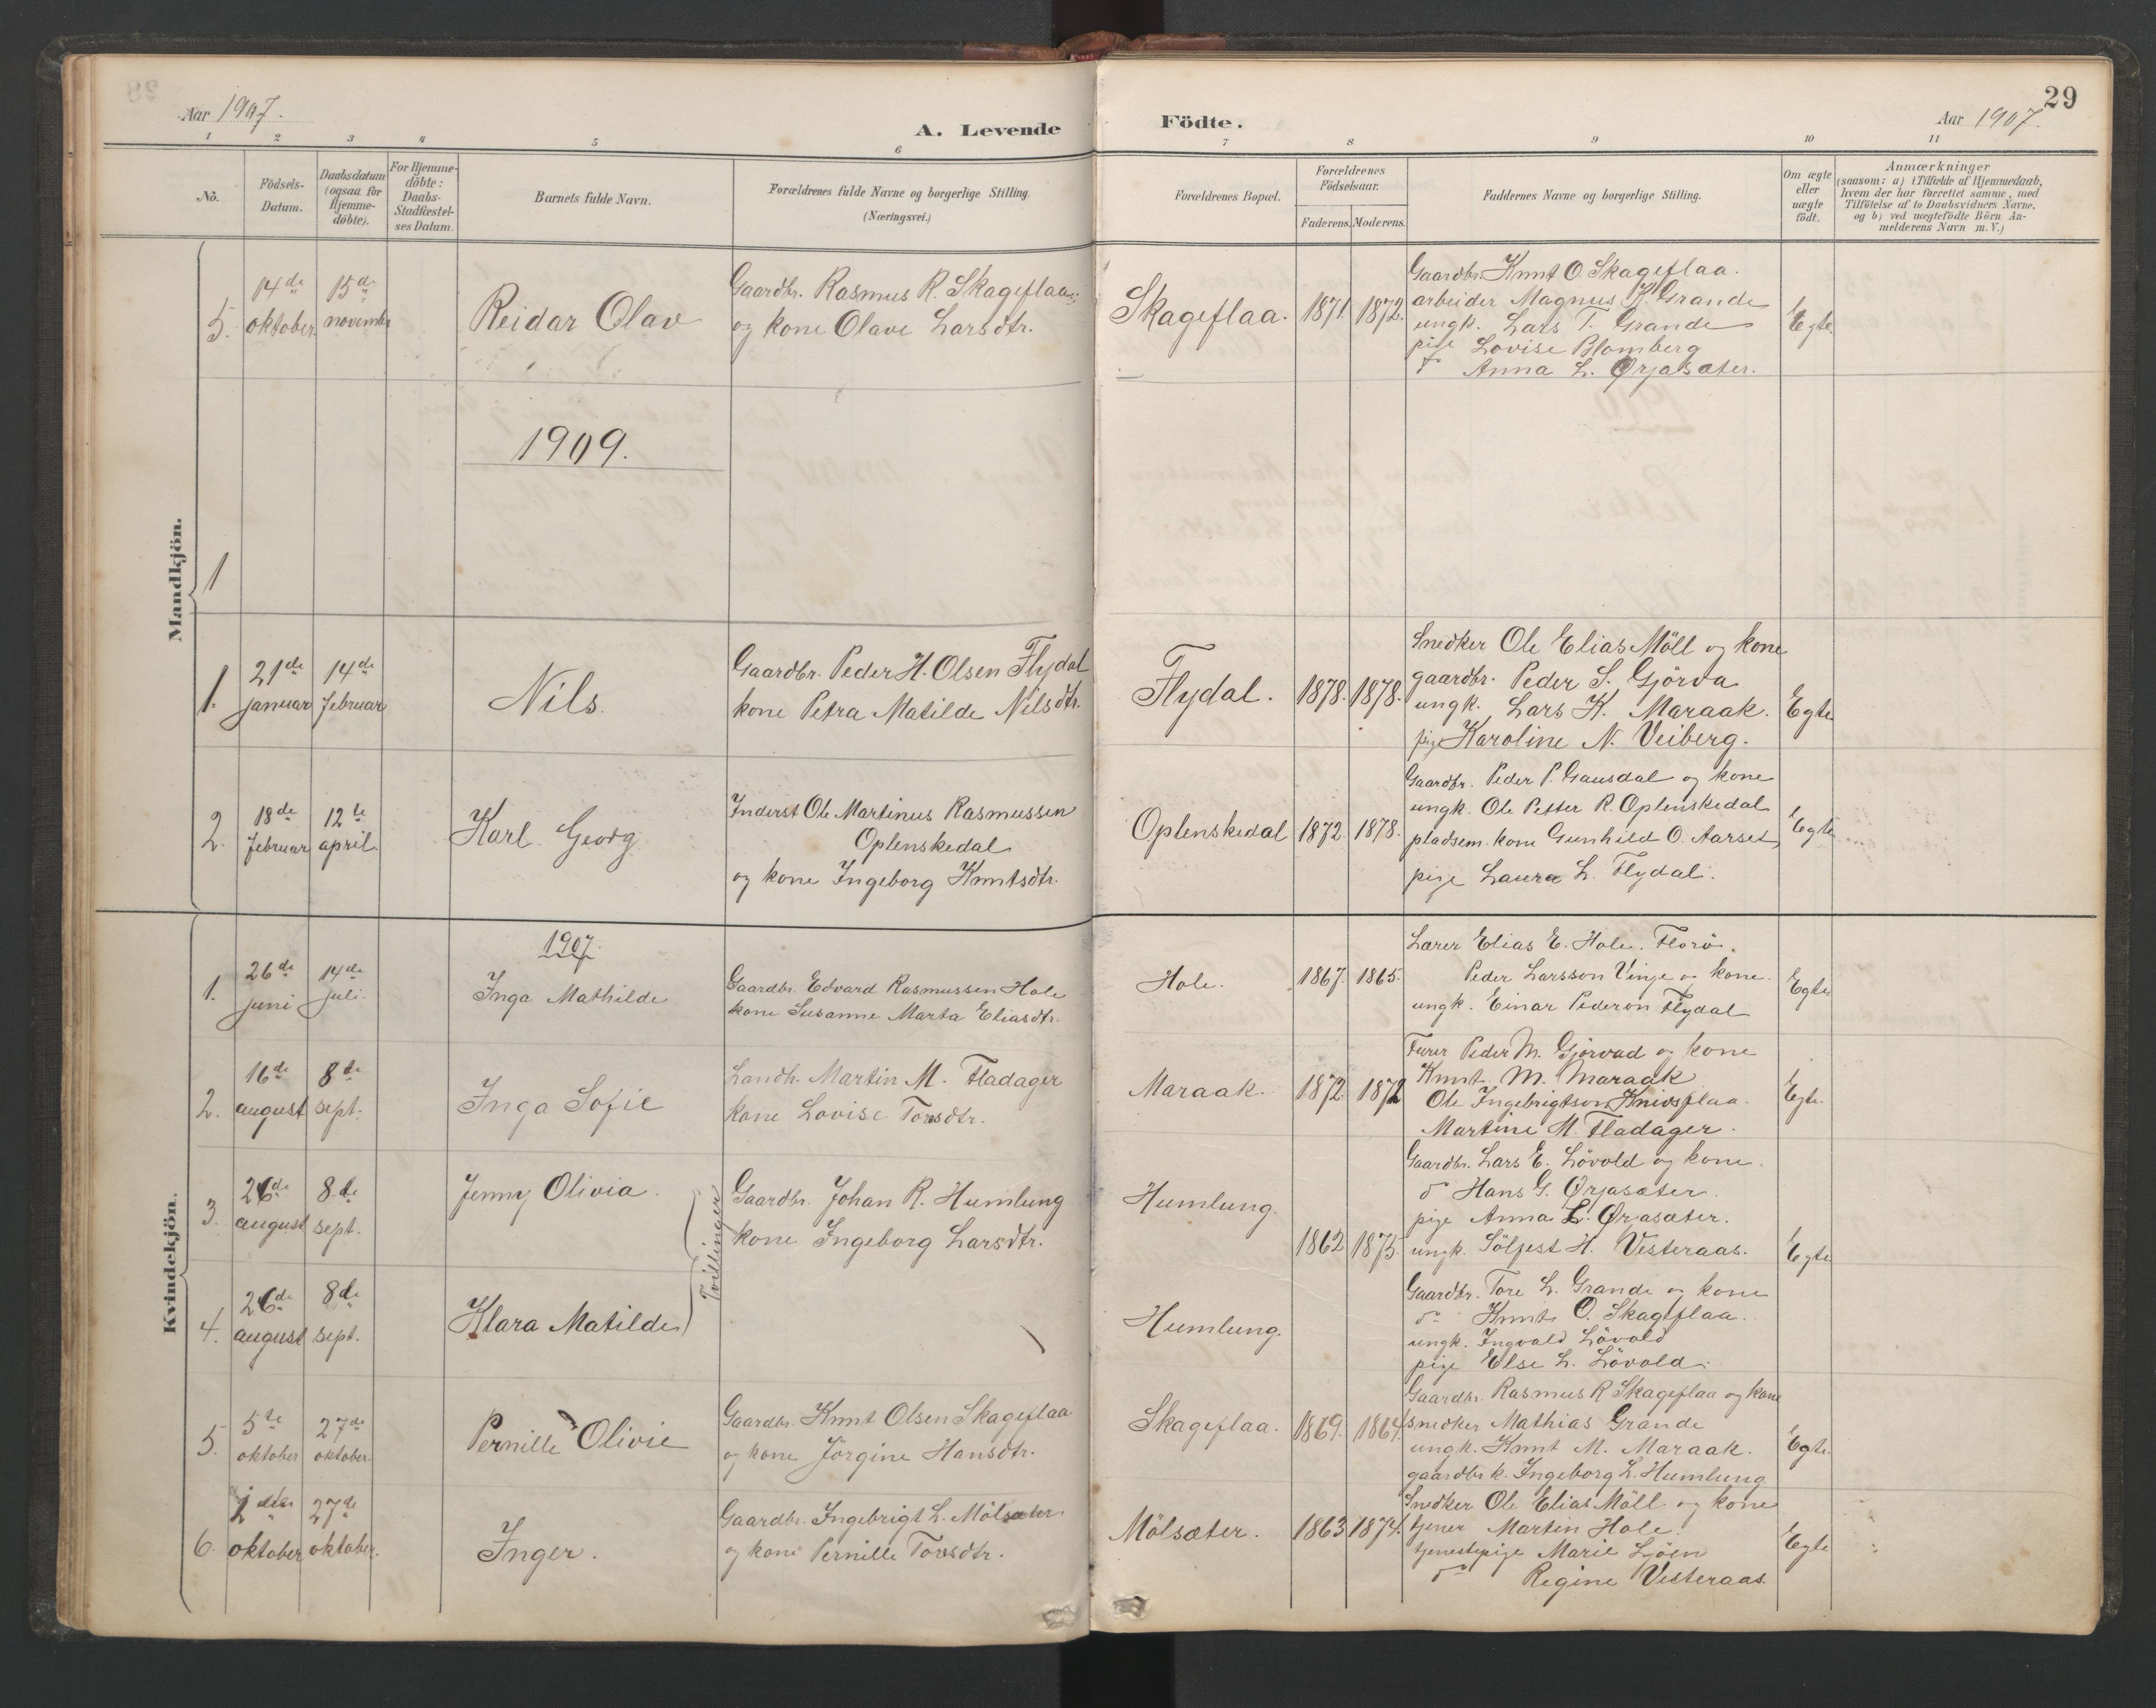 29
Aar 1907.
A. Levende
Födte.
Aar 1907.
1 2 3 4 5 6 7 8 9 10 11
No.
Födsels-
Datum.
Daabsdatum
(ogsaa for
Hjemme-
döbte).
For Hjemme-
döbte:
Daabs-
Stadfæstel-
ses Datum.
Barnets fulde Navn.
Forældrenes fulde Navne og borgerlige Stilling.
(Næringsvei.)
Forældrenes Bopæl.
Forældrenes
Födselsaar.
Faderens. Moderens.
Faddernes Navne og borgerlige Stilling.
Om ægte
eller
uægte
födt.
Anmærkninger
(saasom: a) i Tilfælde af Hjemmedaab,
hvem der har forrettet samme, med
Tilföielse af to Daabsvidners Navne,
og b) ved uægtefödte Börn An-
melderens Navn m. V.)
Mandkjön.
5.
14de
oktober.
15de
november
Reidar Olav
Gaardbr. Rasmus R. Skageflaa
og kone Olave Larsdtr.
Skageflaa.
1871.
1872.
Gaardbr. Knut O. Skageflaa.
arbeider Magnus K. Grande
ungk. Lars T. Grande
pige Lovise Blomberg
do Anna L. Ørjasæter.
Egte.
1909.
1
1.
21de
januar
14de
februar
Nils.
Gaardbr. Peder H. Olsen Flydal
kone Petra Matilde Nilsdtr.
Flydal.
1878.
1878.
Snedker Ole Elias Möll og kone
gaardbr. Peder S. Gjörva
ungk. Lars K. Maraak.
pige Karoline N. Veiberg.
Egte
2.
18de
februar
12te
april.
Karl Georg
Inderst Ole Martinus Rasmussen
Oplenskedal
og kone Ingeborg Knutsdtr.
Oplenskedal
1872.
1878.
Gaardbr. Peder P. Gausdal og kone
ungk. Ole Petter R. Oplenskedal
pladsem. kone Gunhild O. Aarset
pige Laura L. Flydal.
Egte
Kvindekjön.
1907.
1.
26de
juni
14de
juli.
Inga Mathilde
Gaardbr. Edvard Rasmussen Hole
kone Susanne Marta Eliasdtr.
Hole.
1867.
1865.
Lærer Elias E. Hole. Florö.
Peder Larsson Vinje og kone.
ungk. Einar Pederson Flydal
Egte.
2.
16de
august
8de
sept.
Inga Sofie
Landh. Martin M. Fladager
kone Lovise Torsdtr.
Maraak.
1872.
1872
Furer Peder M. Gjörvad og kone
Knut M. Maraak
Ole Ingebrigtson Knivsflaa.
Martine M. Fladager.
Egte.
3.
26de
august
8de
sept.
Jenny Olivia.
Tvillinger
Gaardbr. Johan R. Humlung
kone Ingeborg Larsdtr.
Humlung.
1862
1875.
Gaardbr. Lars E. Lövold og kone.
do Hans G. Ørjasæter.
pige Anna L. Ørjasæter.
ungk. Sölfest H. Vesteraas.
Egte
4.
26de
august
8de
sept.
Klara Matilde
Humlung.
Gaardbr. Tore L. Grande og kone
do Knut O. Skageflaa.
ungk. Ingvald Lövold
pige Else L. Lövold.
5.
5te
oktober
27de
oktober.
Pernille Olivie
Gaardbr. Knut Olsen Skageflaa
og kone Jörgine Hansdtr.
Skageflaa.
1869.
1864.
Gaardbr. Rasmus R Skageflaa og kone
snedker Mathias Grande
ungk. Knut M. Maraak.
gaardbr.k. Ingeborg L. Humlung
Egte.
6.
oktober
27de
oktober.
Inger.
Gaardbr. Ingebrigt L. Mölsæter.
og kone Pernille Torsdtr.
Mölsæter.
1863
1874.
Snedker Ole Elias Möll og kone
tjener Martin Hole.
tjenestepige Marie Ljöen
do Regine Vesteraas.
Egte